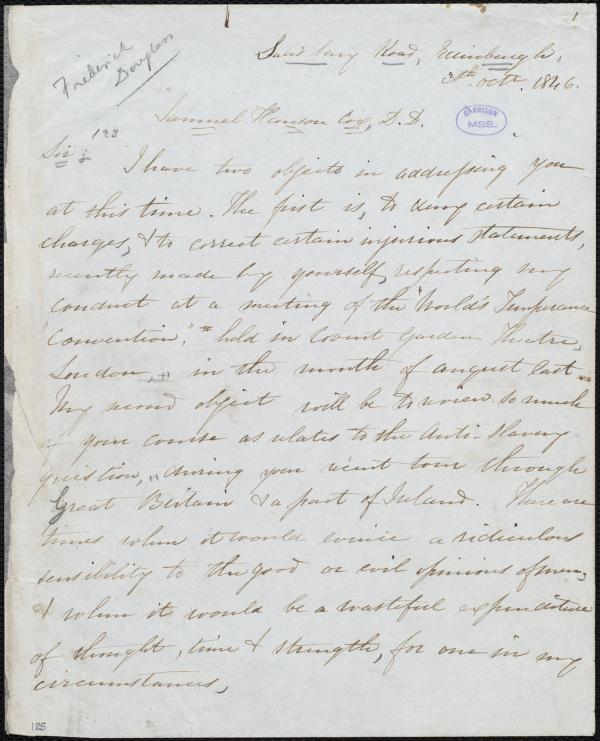 1
Frederick
Douglass
Salisbury Road, Edinburgh,
30th. Octr. 1846.
GARRISON
MSS.
Samuel Hanson Cox, D.D.
125
Sir;
I have two objects in addressing you
at this time. The first is, to deny certain
charges, & to correct certain injurious statements,
recently made by yourself, respecting my
conduct at a meeting of the "World's Temperance
Convention," held in Covent Garden Theatre,
London, in the month of august last.
My second object will be to review so much
of your course as relates to the Anti-Slavery
question, during your recent tour through
Great Britain & a part of Ireland. There are
times when it would evince a ridiculous
sensibility to the good or evil opinions of men,
& when it would be a wasteful expenditure
of thought, time & strength, for one in my
circumstances,
125